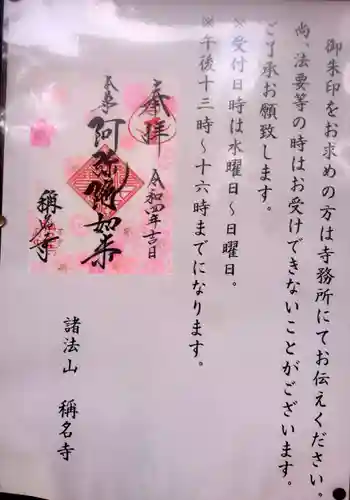 御朱印をお求めの方は寺務所にてお伝えください
尚、法要等の時はお受けできないことがございます。
ご了承お願致します。
※受付日時は水曜日～日曜日。
※午後十三時～十六時までになります。
奉拝
令和四年吉日
本尊
阿弥陀如来
稱名寺
諸法山 稱名寺